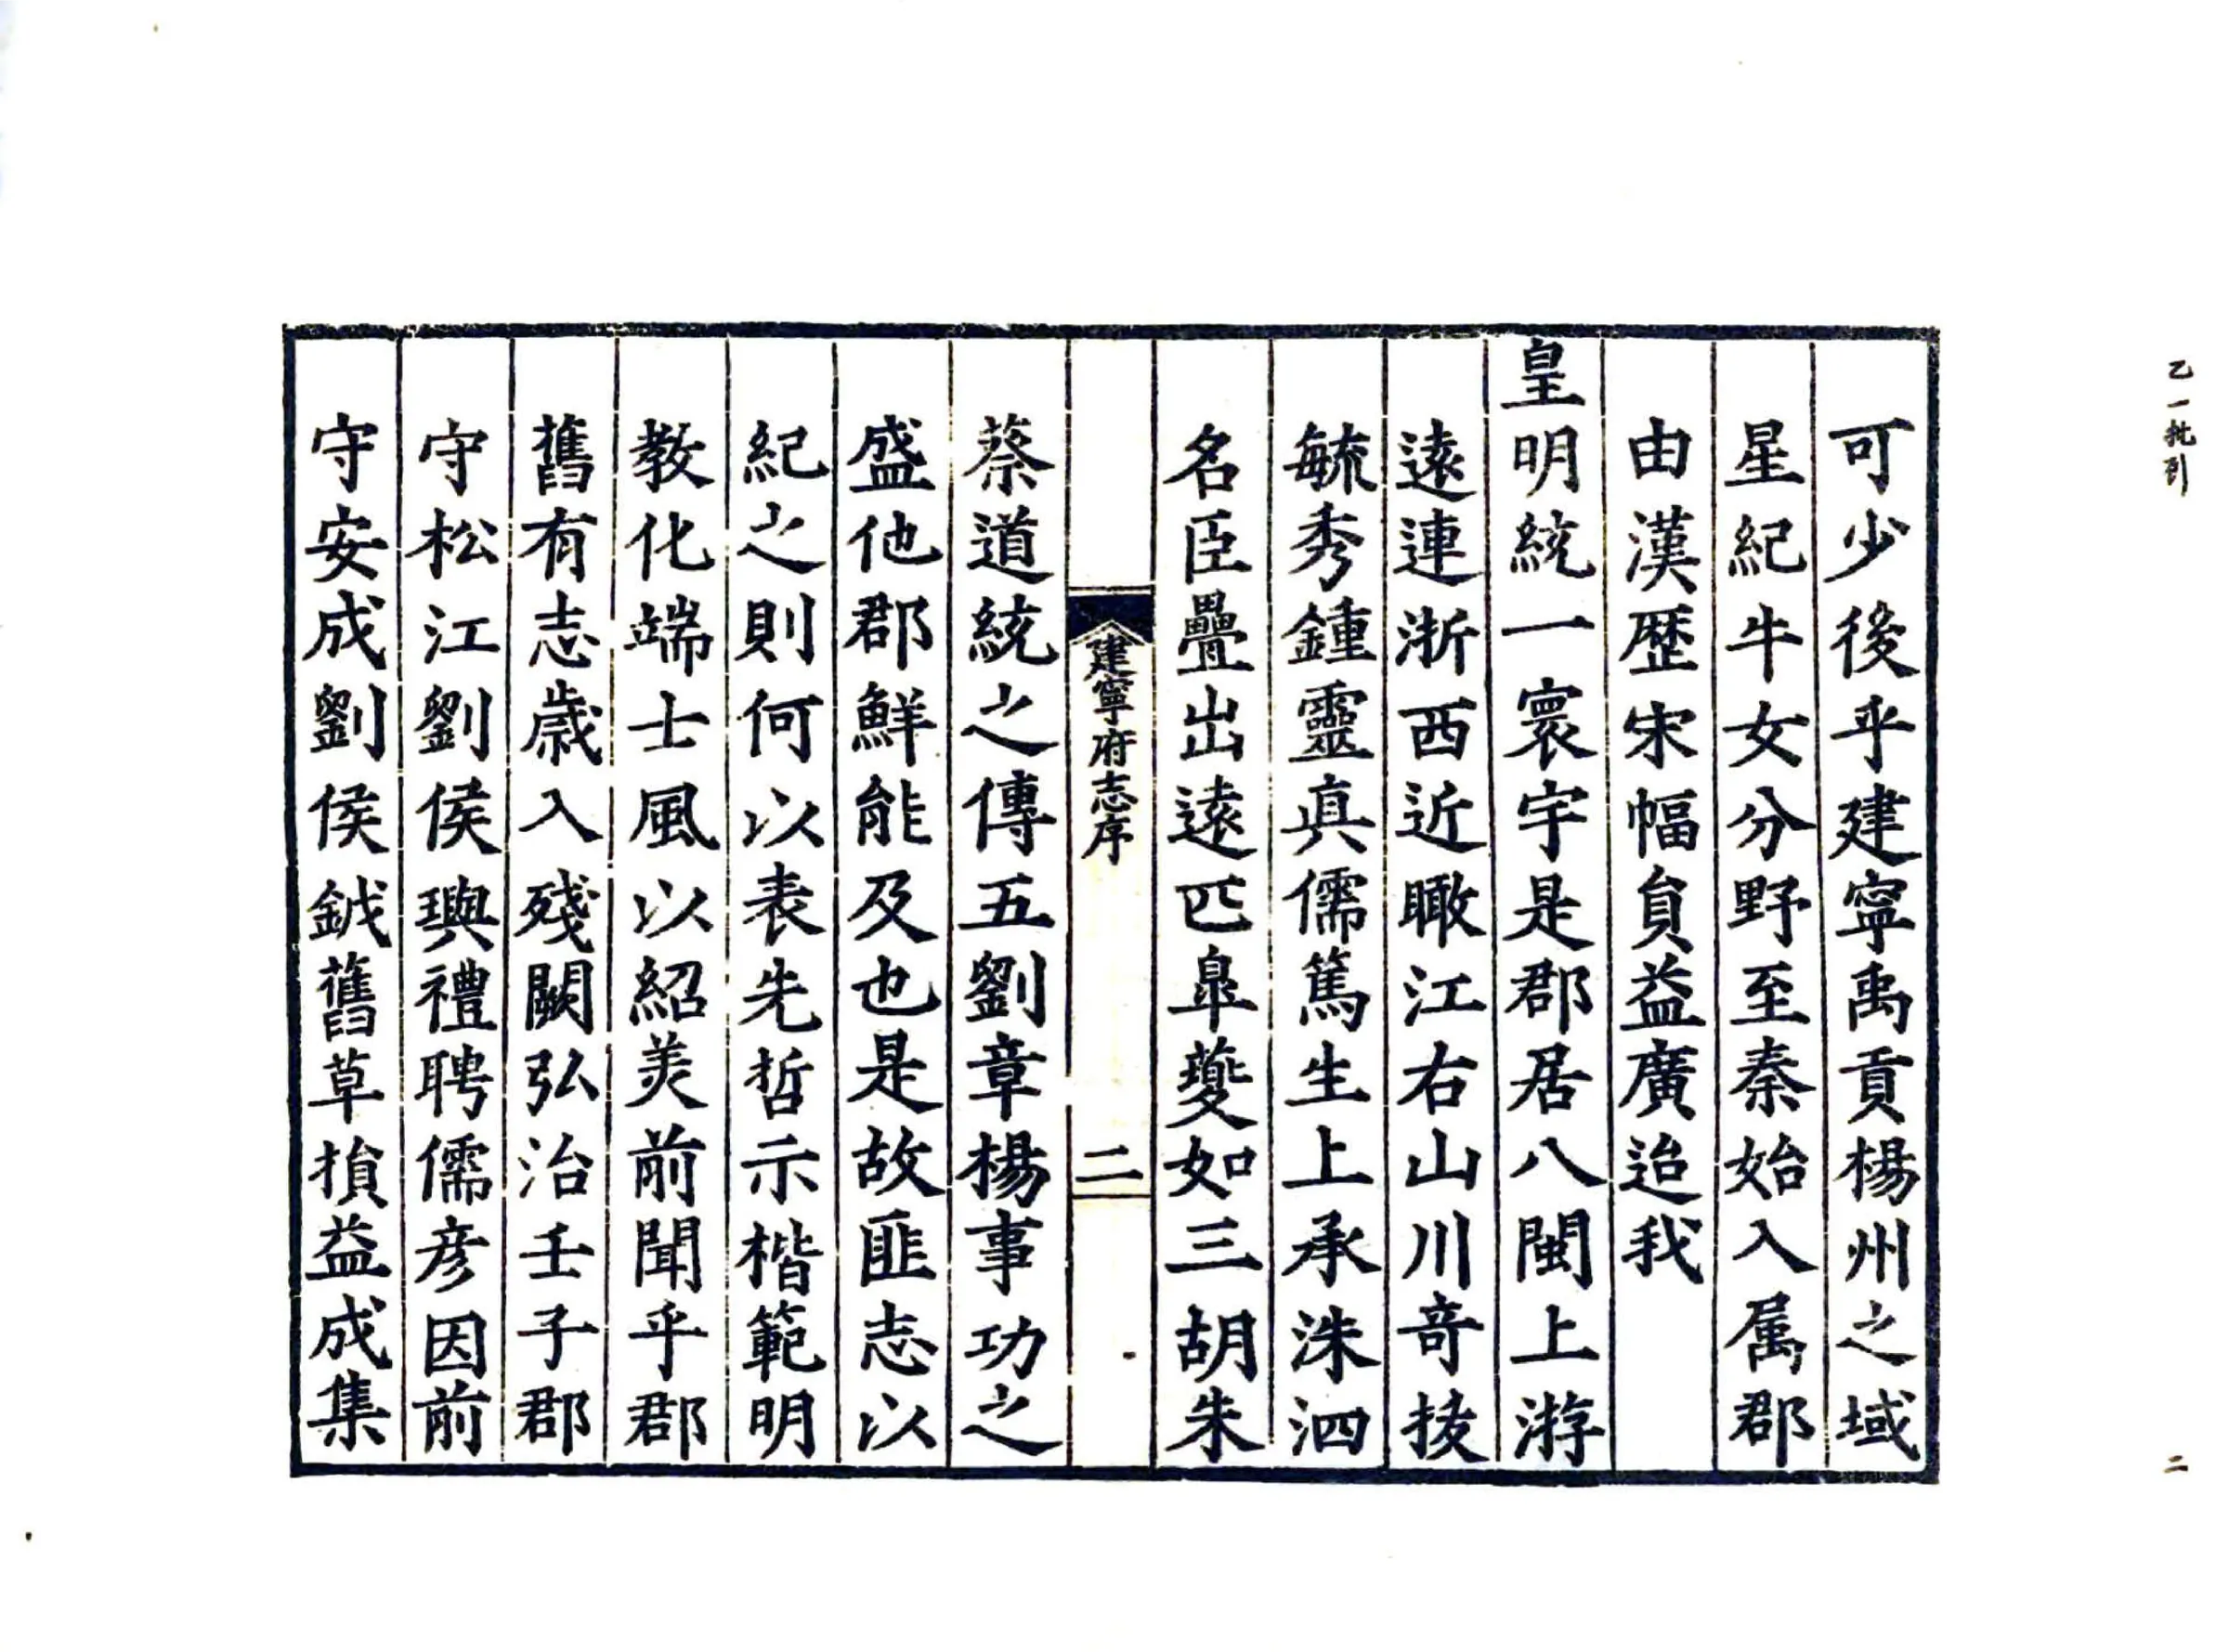 可少後乎建寧禹貢楊州之域
星紀牛女分野至秦始入属郡
由漢歷宋幅員益廣迨我
皇明統一寰宇是郡居八閩上游
遠連浙西近瞰江右山川竒拔
毓秀鍾靈真儒篤生上承洙泗
名臣疊出遠匹臯夔如三胡朱
建寧府志序
二
蔡道統之傳五劉章楊事功之
盛他郡鮮能及也是故匪志以
紀之則何以表先哲示楷範明
教化端士風以紹美前聞乎郡
舊有志歲入殘闕弘治壬子郡
守松江劉侯璵禮聘儒彥因前
守安成劉侯鉞舊草損益成集
乙一
二